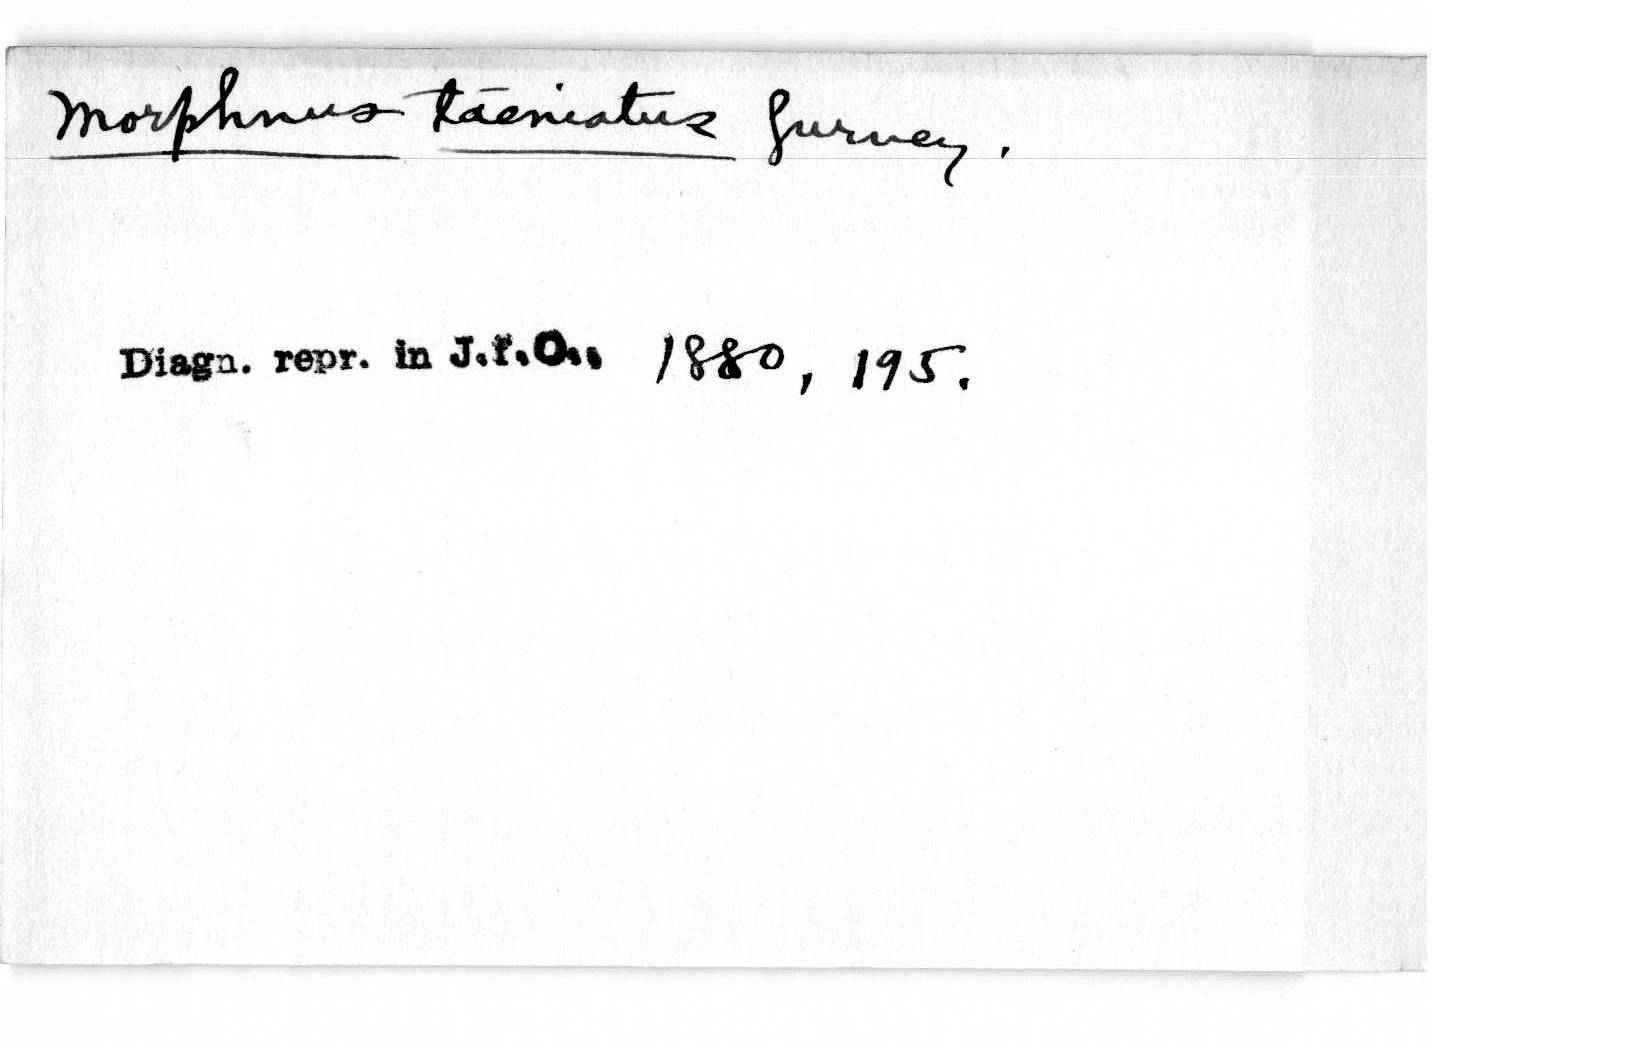 Morphnus taeniatus Gurney.
Diagn. repr. in J.f.O., 1880, 195.